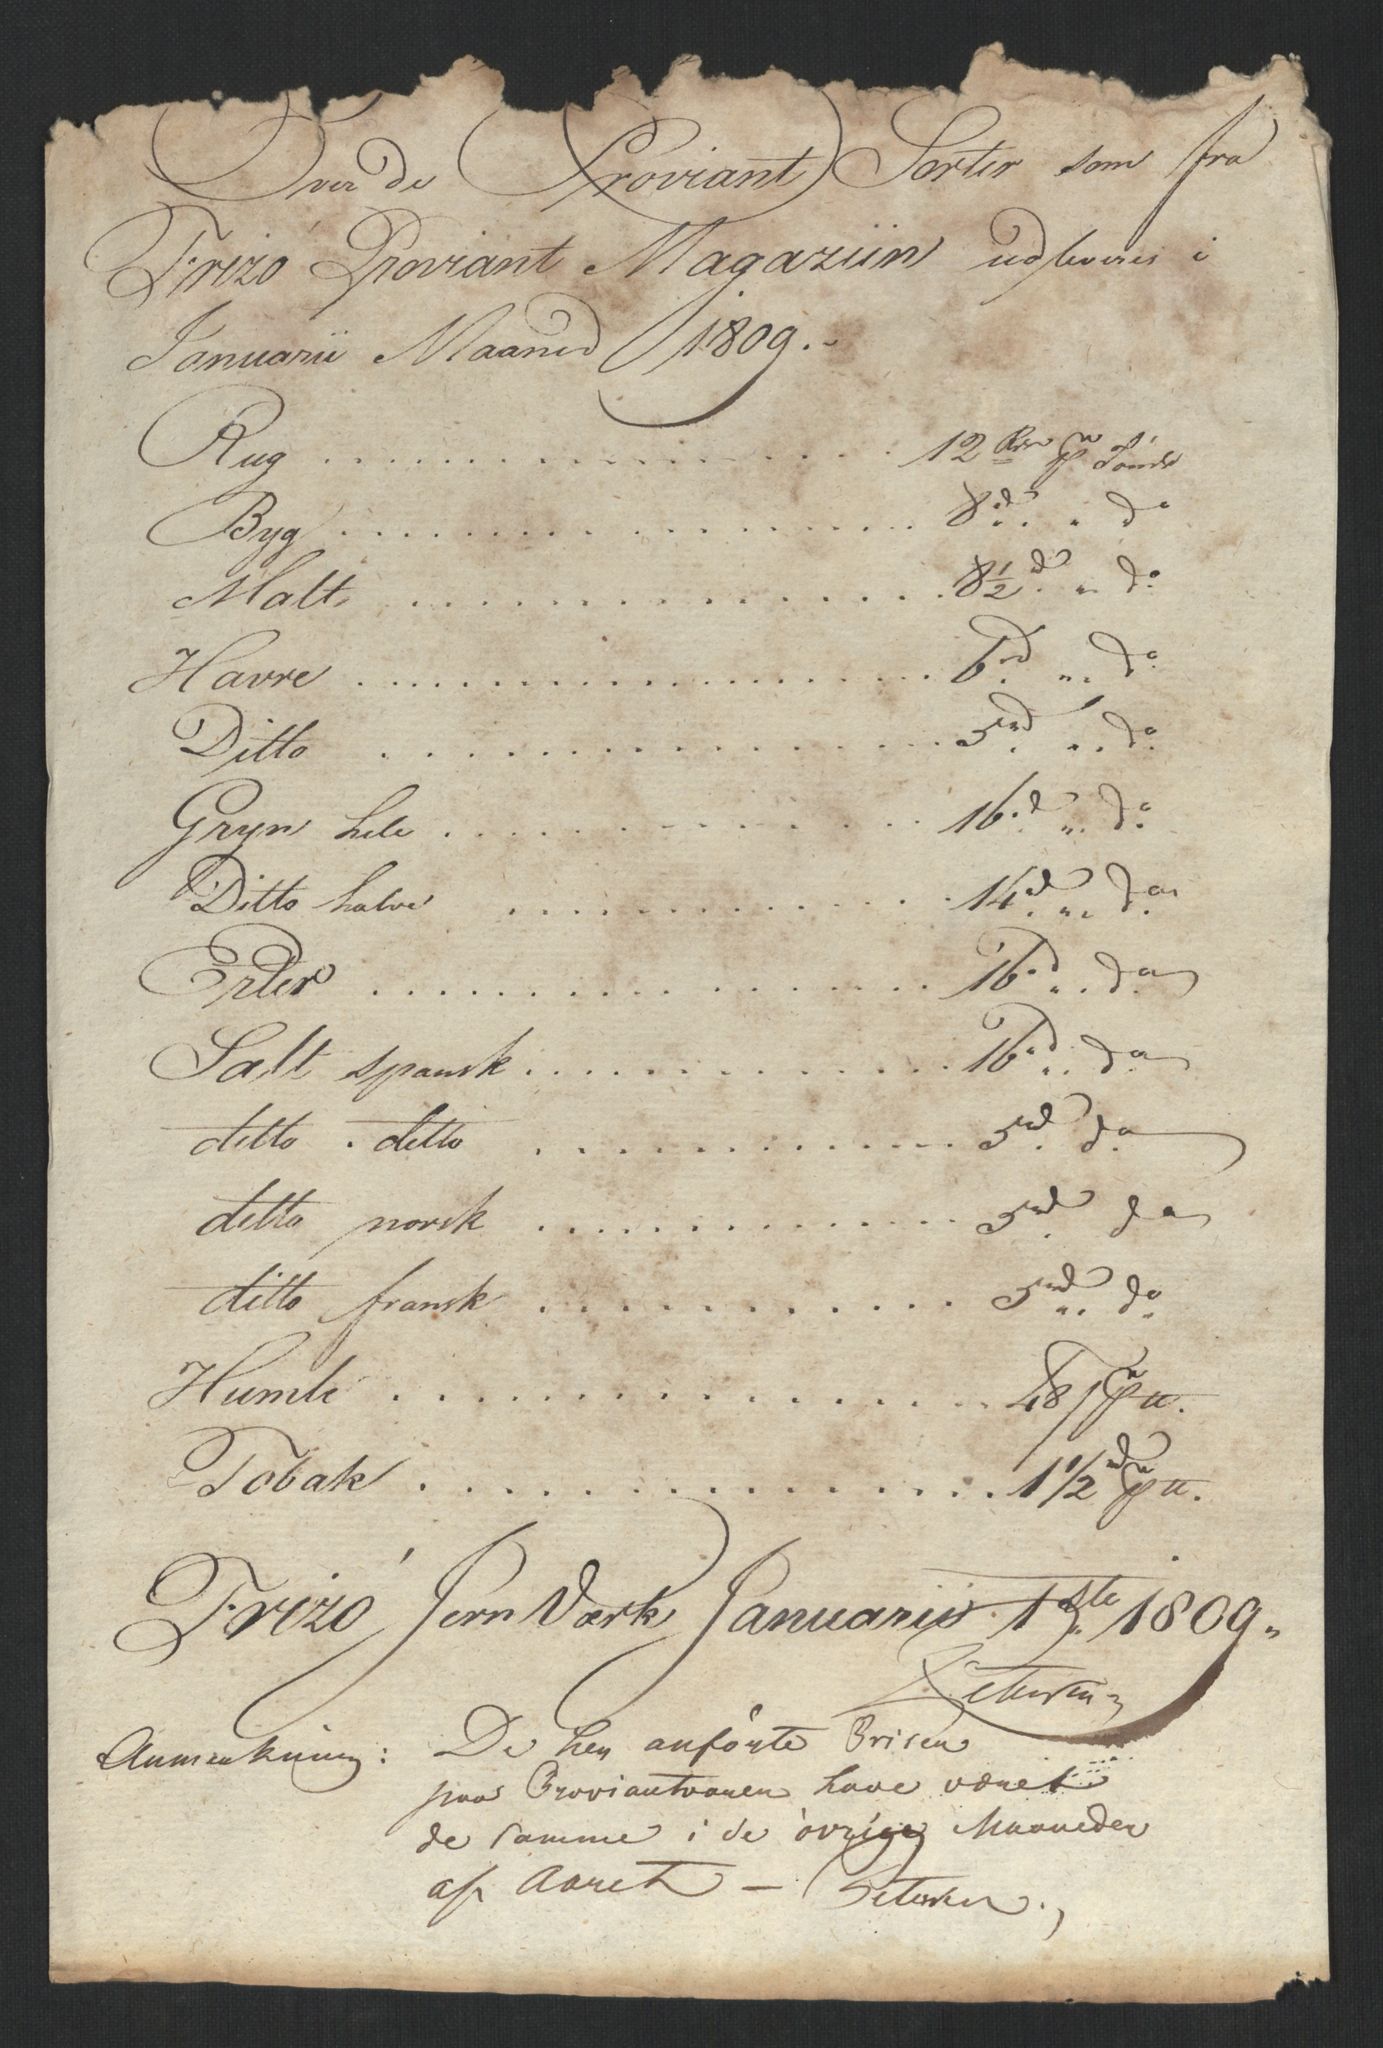 Over de Proviant Sorter som fra
Frizö Proviant Magaziin udleveres i
Januarii Maaned 1809.
Rug . . . . . . . . . . 12 Rdr pr Tönde
Byg . . . . . . . . . . 8 rd " do
Malt . . . . . . . . . . 8½ rd " do
Havre . . . . . . . . . . 6 rd " do
Ditto . . . . . . . . . . 5 rd " do
Gryn hele . . . . . . . . . . 16 rd " do
Ditto halve . . . . . . . . . . 14 rd " do
Erter . . . . . . . . . . 16 rd " do
Salt spansk . . . . . . . . . . 16 rd " do
ditto . ditto . . . . . . . . . . 5 rd do
ditto norsk . . . . . . . . . . 5 rd do
ditto fransk . . . . . . . . . . 5 rd " do
Humle . . . . . . . . . . 48 ſ pr ℔.
Tobak . . . . . . . . . . 1½ rd pr ℔.
Frizö Jern Værk Januarii 1ste 1809.
Petersen
Anmerkning: De her anförte Prisen
paa Proviantvaren have været
de samme i de övrige Maaneder
af Aaret — Petersen.